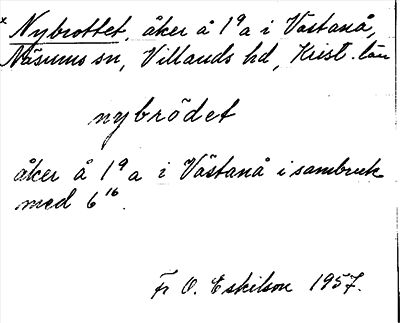 x Nybrottet, åker å 1⁹a i Västanå,
Näsums sn, Villands hd, Krist. län
nybrödet
åker å 1⁹a i Västanå i sambruk
med 6¹⁶.
Fr O. Eskilson 1957.